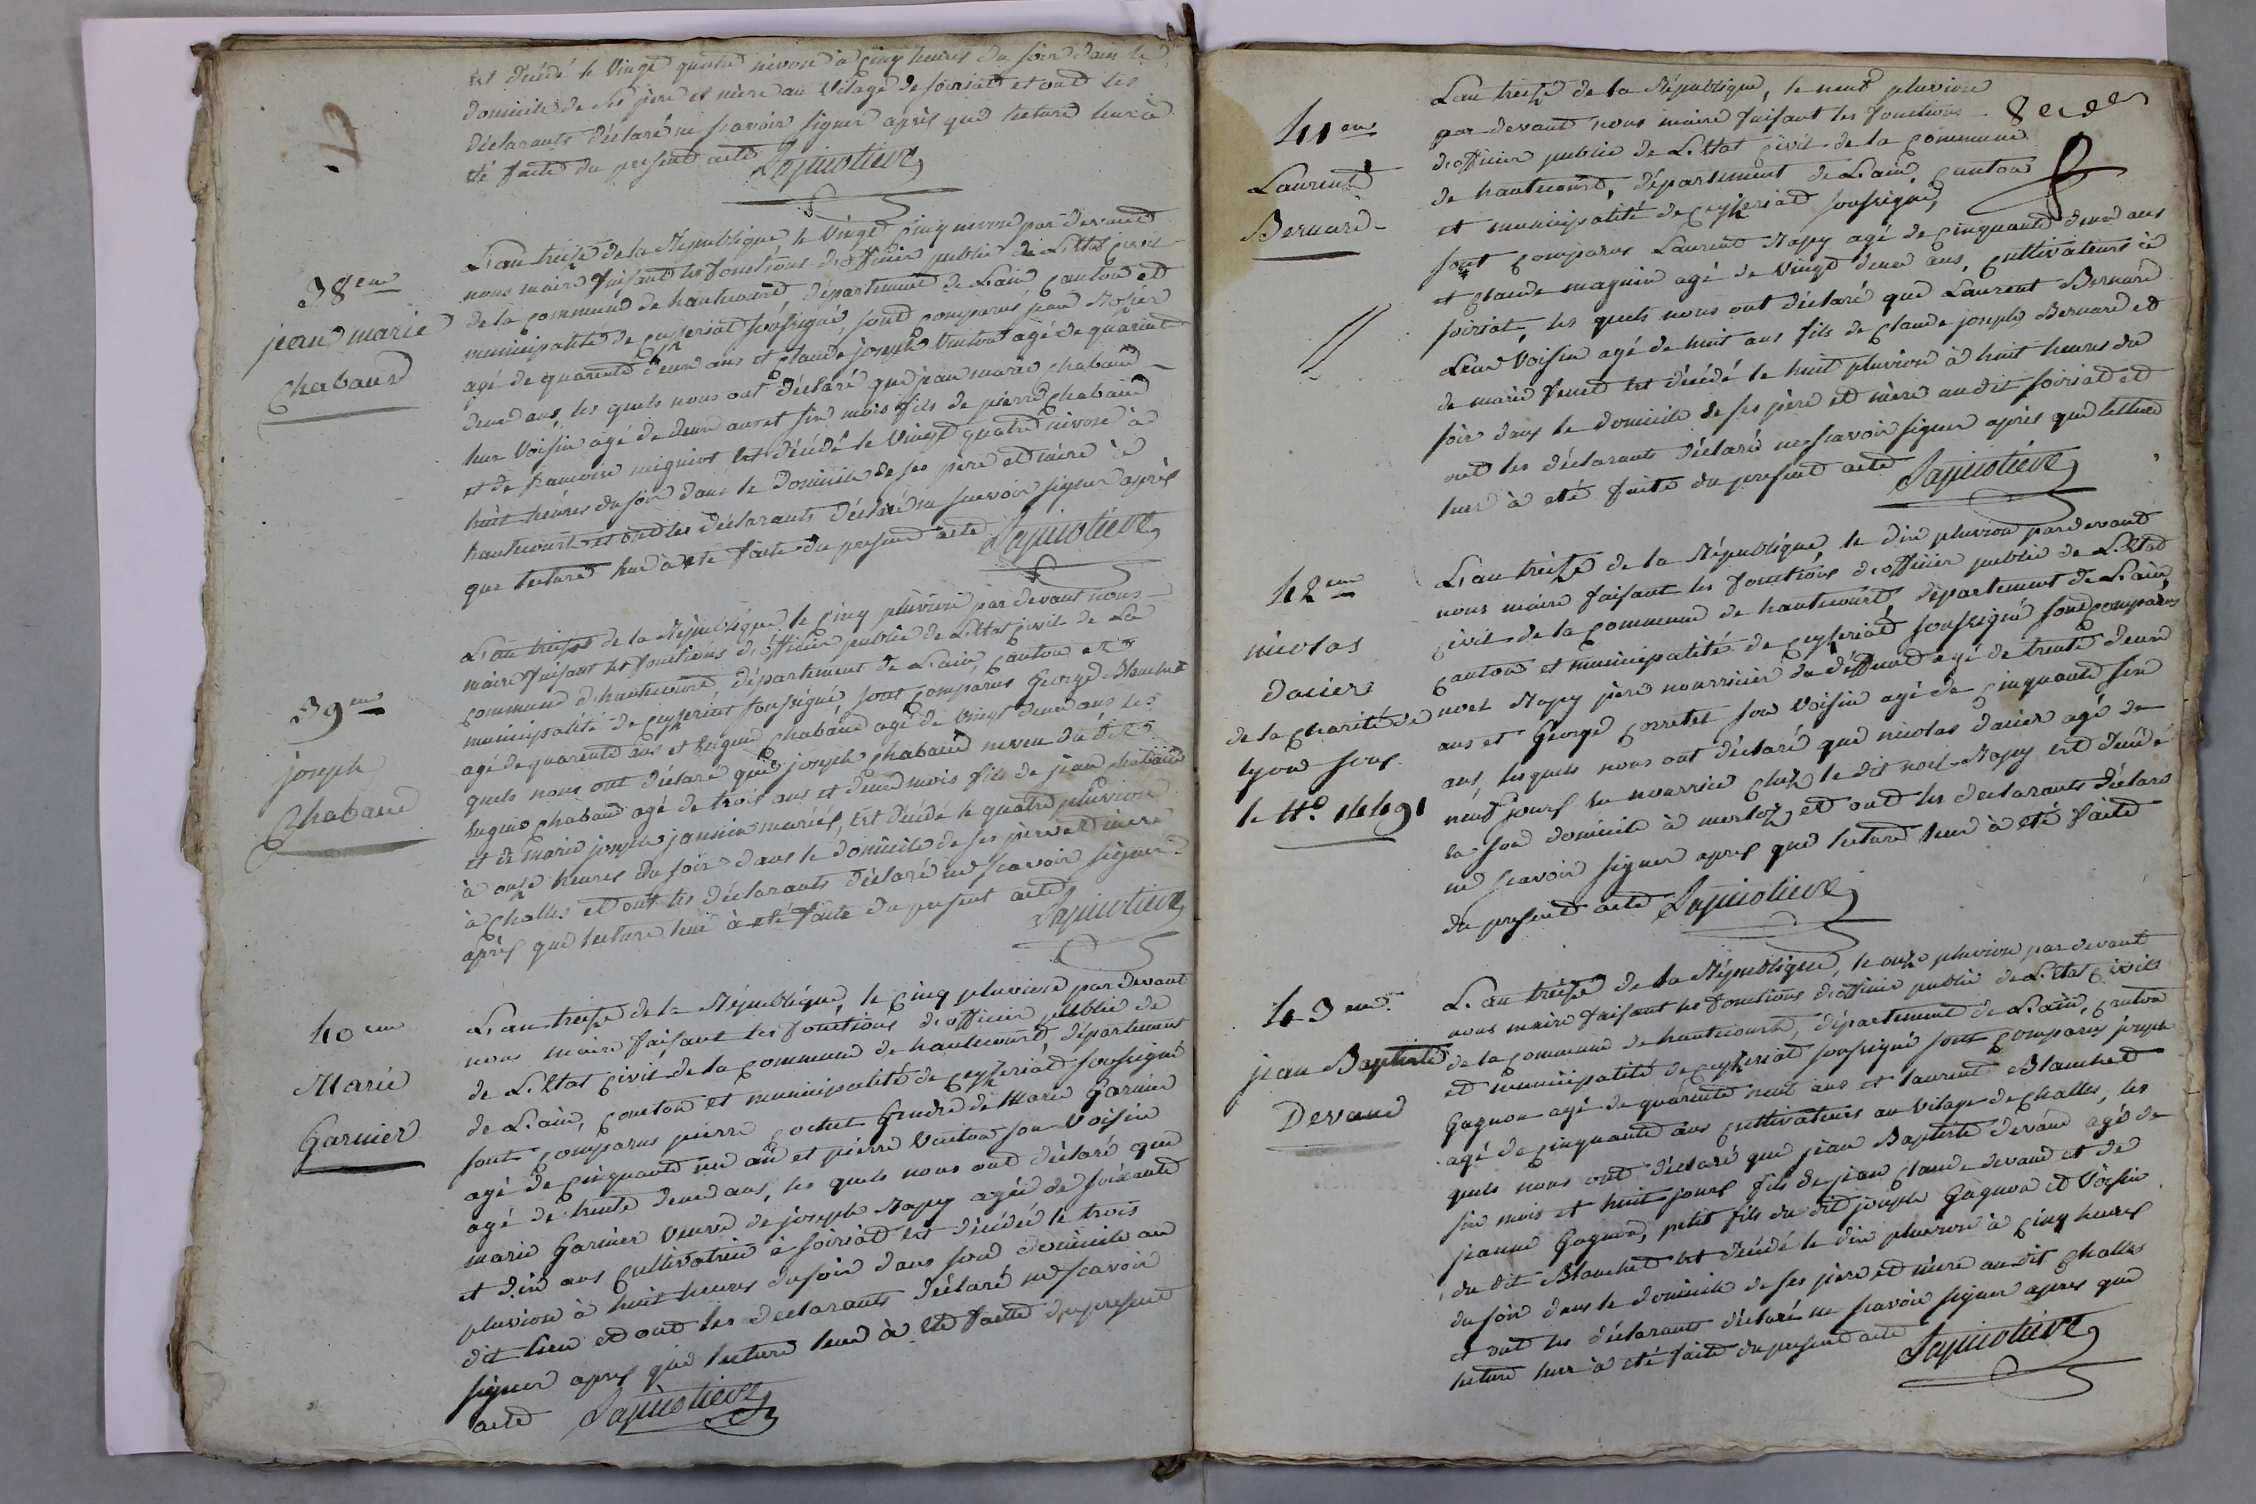 est décédé le vingt quatre nivose à cinq heures du soir dans le
domicile de ses père et mère au vilage de soiriat et ont les
déclarants déclaré ne scavoir signer après que lecture leur à
été faite du present acte
38eme
jean marie
Chabaud
L'an treize de la République, le vingt cinq nivose par devant
nous maire faisant les fonctions d'officier public de L'Etat civil
de la commune de hautecourt, département de L'ain, canton et
municipalité de ceyzeriat soussigné, sont comparus jean
agé de quarante deux ans et claude joseph vuiton agé de quarante
deux ans, les quels nous ont déclaré que jean marie chabaud
leur voisin agé de deux ans et six mois fils de pierre chabaud
et de francoise mignot est décédé le vingt quatre nivose à
huit heures du soir dans le domicile de ses pere et mère à
hautecourt et ont les déclarants déclaré ne scavoir signer après
que lecture leur à été faite du present acte
39eme
joseph
Chabaud
L'an treize de la République le cinq pluviose par devant nous
maire faisant les fonctions d'officier public de L'Etat civil de La
commune d'hautecourt, département de L'ain, canton et
municipalité de ceyzeriat soussigné, sont comparus George Blanchet
agé de quarante ans et hugue chabaud agé de vingt deux ans les
quels nous ont déclaré que joseph chabaud neveu du dit
hugue chabaud agé de trois ans et deux mois fils de jean chabaud
et de marie joseph mariés, est décédé le quatre pluviose
à onze heures du soir dans le domicile de ses père et mere
à Challes et ont les déclarants déclaré ne scavoir signer
après que lecture leur à eté faite du present acte
40eme
Marie
Garnier
L'an treize de la République, le cinq pluviose par devant
nous maire faisant les fonctions d'officier public de
de L'Etat civil de la commune de hautecourt, département
de L'ain, canton et municipalité de ceyzeriat soussigné
sont comparus pierre cochet Gendre de Marie Garnier
agé de cinquante un an et pierre vuiton son voisin
agé de trente deux ans, les quels nous ont déclaré que
marie Garnier veuve de joseph Napy agée de soixante
et dix ans cultivatrice à soiriat est décédée le trois
pluviose à huit heures du soir dans son domicile au
dit lieu et ont les declarants déclaré ne scavoir
signer apres que lecture leur à été faite du present
acte
41eme
Laurent
Bernard
L'an treize de la République, le neuf pluviose
par devant nous maire faisant les fonctions
d'officier public de L'Etat civil de la commune
de hautecourt, département de L'ain, canton
et municipalité de ceyzeriat soussigné,
sont comparus Laurent Napy agé de cinquante deux ans
et claude magnin agé de vingt deux ans, cultivateurs à
soiriat, les quels nous ont déclaré que Laurent Bernard
Leur voisin agé de huit ans fils de claude joseph Bernard et
de marie est décédé le huit pluviose à huit heures du
soir dans le domicile de ses père et mère au dit soiriat et
ont les déclarants déclaré ne scavoir signer après que lecture
leur à eté faite du present acte
42eme
nicolas
dacier
de la charité de
lyon sous
le N°. 14491
L'an treize de la République, le dix pluviose par devant
nous maire faisant les fonctions d'officier public de L'Etat
civil de la commune de hautecourt, département de L'ain,
canton et municipalité de ceyzeriat soussigné sont comparus
noel Napy père nourricier du déffunt agé de trente deux
ans et George corretet son voisin agé de cinquante six
ans, lesquels nous ont déclaré que nicolas dacier agé de
neuf jours en nourrice chez le dit noel Napy est décédé
en son domicile à merloz et ont les declarants déclaré
ne scavoir signer apres que lecture leur à eté faite
du present acte
43eme
jean Baptiste
Devaud
L'an treize de la République, le onze pluviose par devant
nous maire faisant les fonctions d'officier public de L'Etat civil
de la commune de hautecourt, département de L'ain, canton
et municipalité de ceyzeriat soussigné sont comparus joseph
Gagnon agé de quarente neuf ans et laurent Blanchet
agé de cinquante ans cultivateurs au vilage de challes, les
quels nous ont déclaré que jean Baptiste devaud agé de
six mois et huit jours fils de jean claude devaud et de
jeanne Gagnon, petit fils du dit joseph Gagnon et voisin
du dit Blanchet est décédé le dix pluviose à cinq heures
du soir dans le domicile de ses père et mère au dit Challes
et ont les déclarants déclaré ne scavoir signer apres que
lecture leur à eté faite du present acte